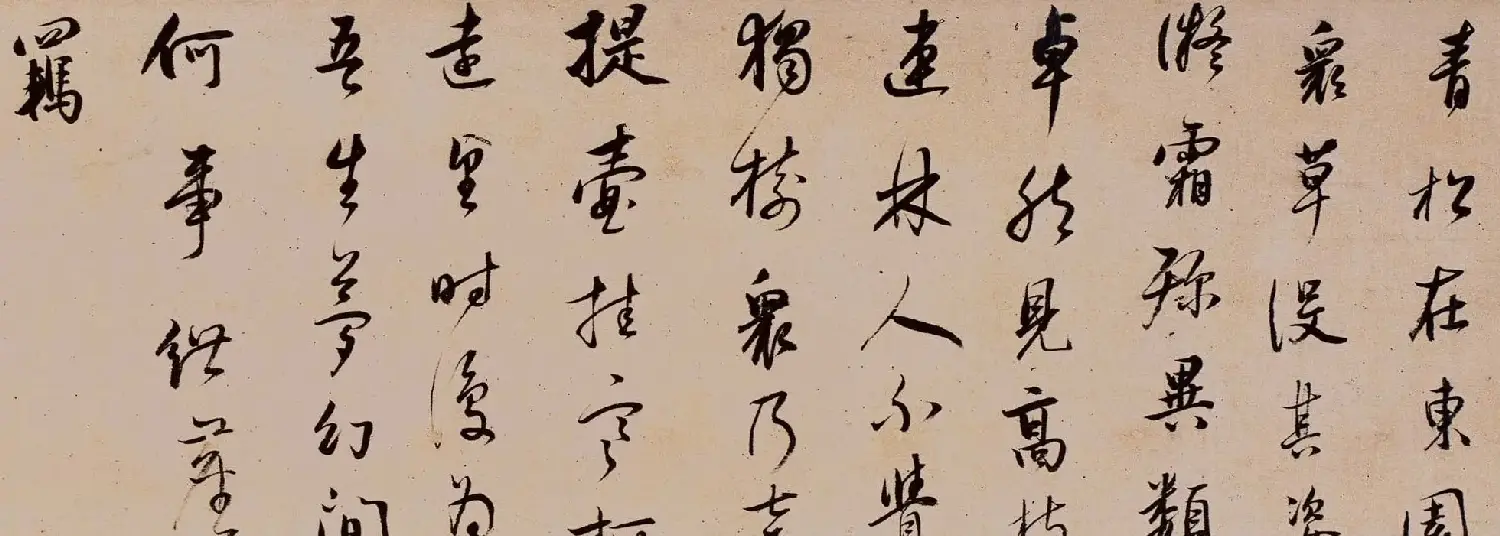 青松在東園
衆草没其姿
凝霜殄異類
卓然見高枝
連林人不覺
獨樹衆乃奇
提壺挂寒柯
遠望時復為
吾生夢幻間
何事紲塵
羈